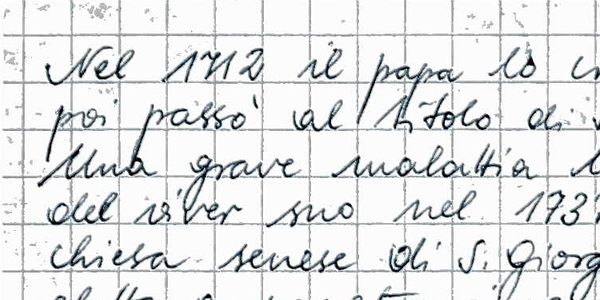 Nel 1712 il papa lo
poi passò al titolo di
Una grave malattia
del viver suo nel 173
chiesa senese di S. Giorg